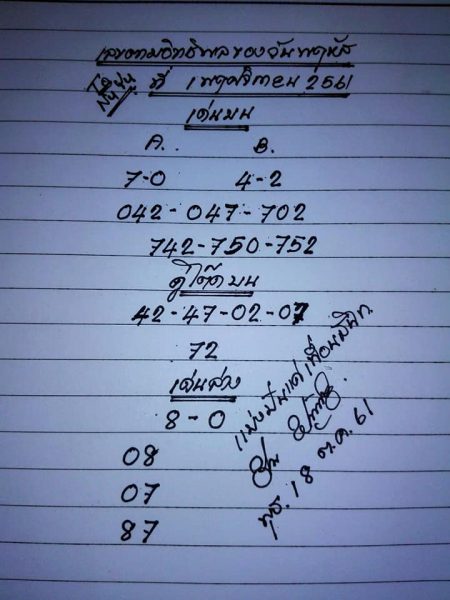 เลขตามอิทธิพลของวันพฤหัส
ที่ 1 พฤศจิกายน 2561
เด่นบน
A. B.
7-0 4-2
042-047-702
742-750-752
คู่โต๊ดบน
42-47-02-07
72
เด่นล่าง
8-0
08
07
87
แบ่งปันแด่เพื่อนมิตร
พุธ. 18 ต.ค. 61